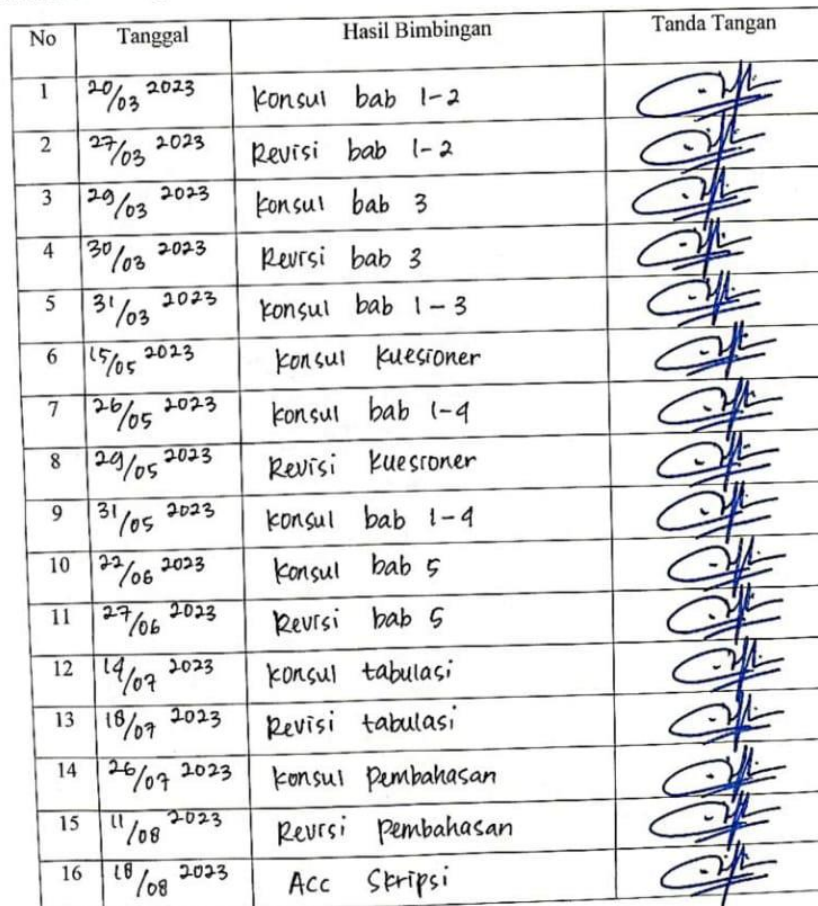 No Tanggal Hasil Bimbingan Tanda Tangan
1 20/03 2023 Konsul bab 1-2
2 27/03 2023 Revisi bab 1-2
3 29/03 2023 Konsul bab 3
4 30/03 2023 Revisi bab 3
5 31/03 2023 Konsul bab 1-3
6 15/05 2023 Konsul Kuesioner
7 26/05 2023 Konsul bab 1-4
8 29/05 2023 Revisi Kuesioner
9 31/05 2023 Konsul bab 1-4
10 22/06 2023 Konsul bab 5
11 27/06 2023 Revisi bab 5
12 14/07 2023 Konsul tabulasi
13 18/07 2023 Revisi tabulasi
14 26/07 2023 Konsul Pembahasan
15 11/08 2023 Revisi Pembahasan
16 18/08 2023 Acc Skripsi